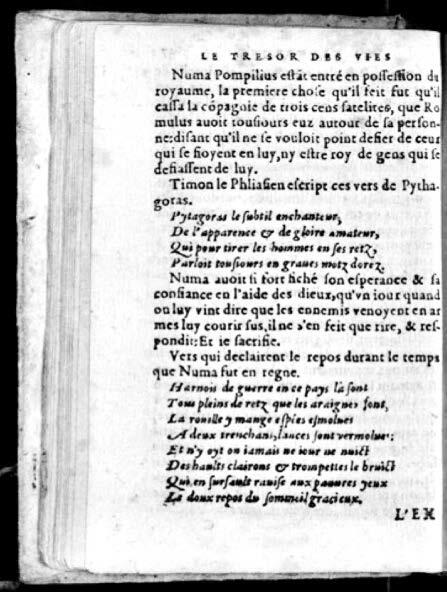 LE TRESOR DES VIES
Numa Pompilius estãt entré en possession du
royaume, la premiere chose qu'il feit fut qu'il
cassa la cõpagnie de trois cens satelites, que Ro
mulus auoit tousiours euz autour de sa person-
ne: disant qu'il ne se vouloit point defier de ceux
qui se fioyent en luy, ny estre roy de gens qui se
defiassent de luy.
Timon le Phliasien escript ces vers de Pytha-
goras.
Pytagoras le subtil enchanteur,
De l'apparence & de gloire amateur,
Qui pour tirer les hommes en ses retz,
Parloit tousiours en graues motz dorez.
Numa auoit si fort fiché son esperance & sa
confiance en l'aide des dieux, qu'vn iour quand
on luy vint dire que les ennemis venoyent en ar
mes luy courir sus, il ne s'en feit que rire, & res-
pondit: Et ie sacrifie.
Vers qui declairent le repos durant le temps
que Numa fut en regne.
Harnois de guerre en ce pays là sont
Tous pleins de retz que les araignes font,
La rouille y mange espées esmolues
A deux trenchans, lances sont vermolues:
Et n'y oyt on iamais ne iour ne nuict
Des haults clairons & trompettes le bruict
Qui en sursault rauisse aux pauures yeux
Le doux repos du sommeil gracieux.
L'EX